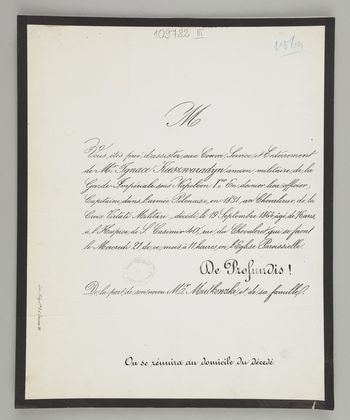 109782 III
M
Vous êtes prié d'assister aux Convoi, Service et Enterrement
de Mr. Ignace Kieszwaradyn ancien militaire de la
Garde Impériale sous Napoléon 1er. En dernier lieu officier,
Capitaine dans l'armée Polonaise en 1831, au Chevalier de la
Croix Virtuti Militari, décédé le 19 Septembre à l'âge de ans,
à l'Hospice de St. Casimir 40, rue du Chevaleret, qui se feront
le Mercredi 21 de ce mois à 11 heures, en l'Eglise Paroissielle.
De Profundis!
De la part de son neveu Mr. et de sa famille.
On se réunira au domicile du décédé